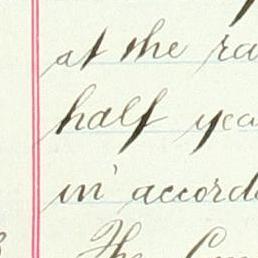 at the ra
half yea
in accord
The Con